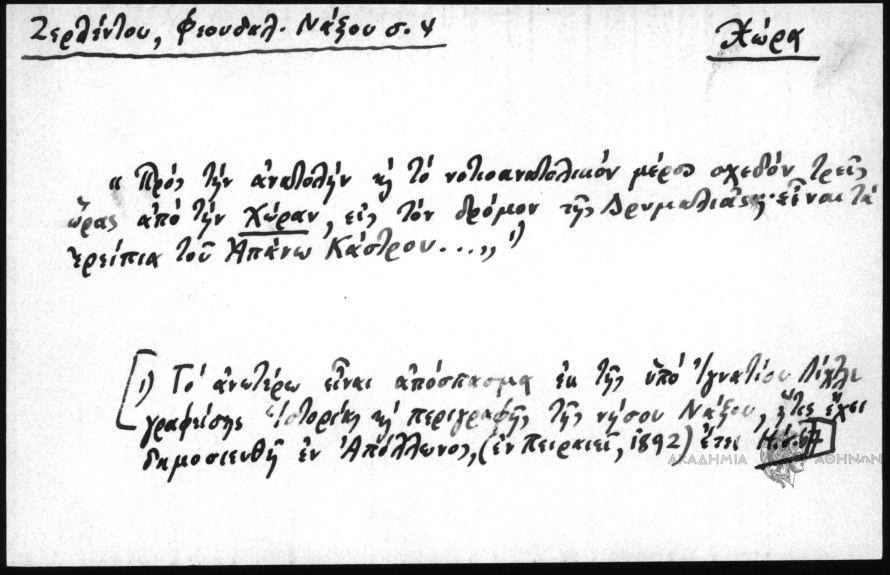 Ζερλέντου, Φεουδαλ. Νάξου σ. 4
Χώρα
« Πρός τήν ἀνατολήν κ̀ τό νοτιοανατολικόν μέρος σχεδόν τρεῖς
ὥρας ἀπό τήν Χώραν, εἰς τόν δρόμον τῆς Δρυμαλιᾶς εἶναι τά
ἐρείπια τοῦ Ἀπάνω Κάστρου...,, ¹)
[¹) Τό ἀνωτέρω εἶναι ἀπόσπασμα ἐκ τῆς ὑπό Ἰγνατίου Λίχτλε
γραφείσης Ἱστορίας κ̀ περιγραφῆς τῆς νήσου Νάξου, ἥτις ἔχει
δημοσιευθῆ ἐν Ἀπόλλωνος, (ἐν Πειραιεῖ, 1892) ἔτει
ΑΚΑΔΗΜΙΑ ΑΘΗΝΩΝ